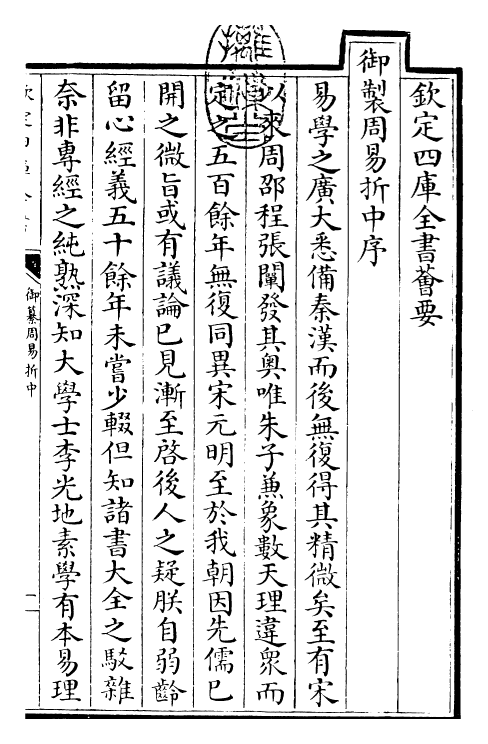 欽定四庫全書薈要
御製周易折中序
易學之廣大悉備秦漢而後無復得其精微矣至有宋
以來周邵程張闡發其奧唯朱子兼象數天理違衆而
定之五百餘年無復同異宋元明至於我朝因先儒已
開之微旨或有議論已見漸至啓後人之疑朕自弱齡
留心經義五十餘年未嘗少輟但知諸書大全之駁雜
奈非專經之純熟深知大學士李光地素學有本易理
御纂周易折中
一